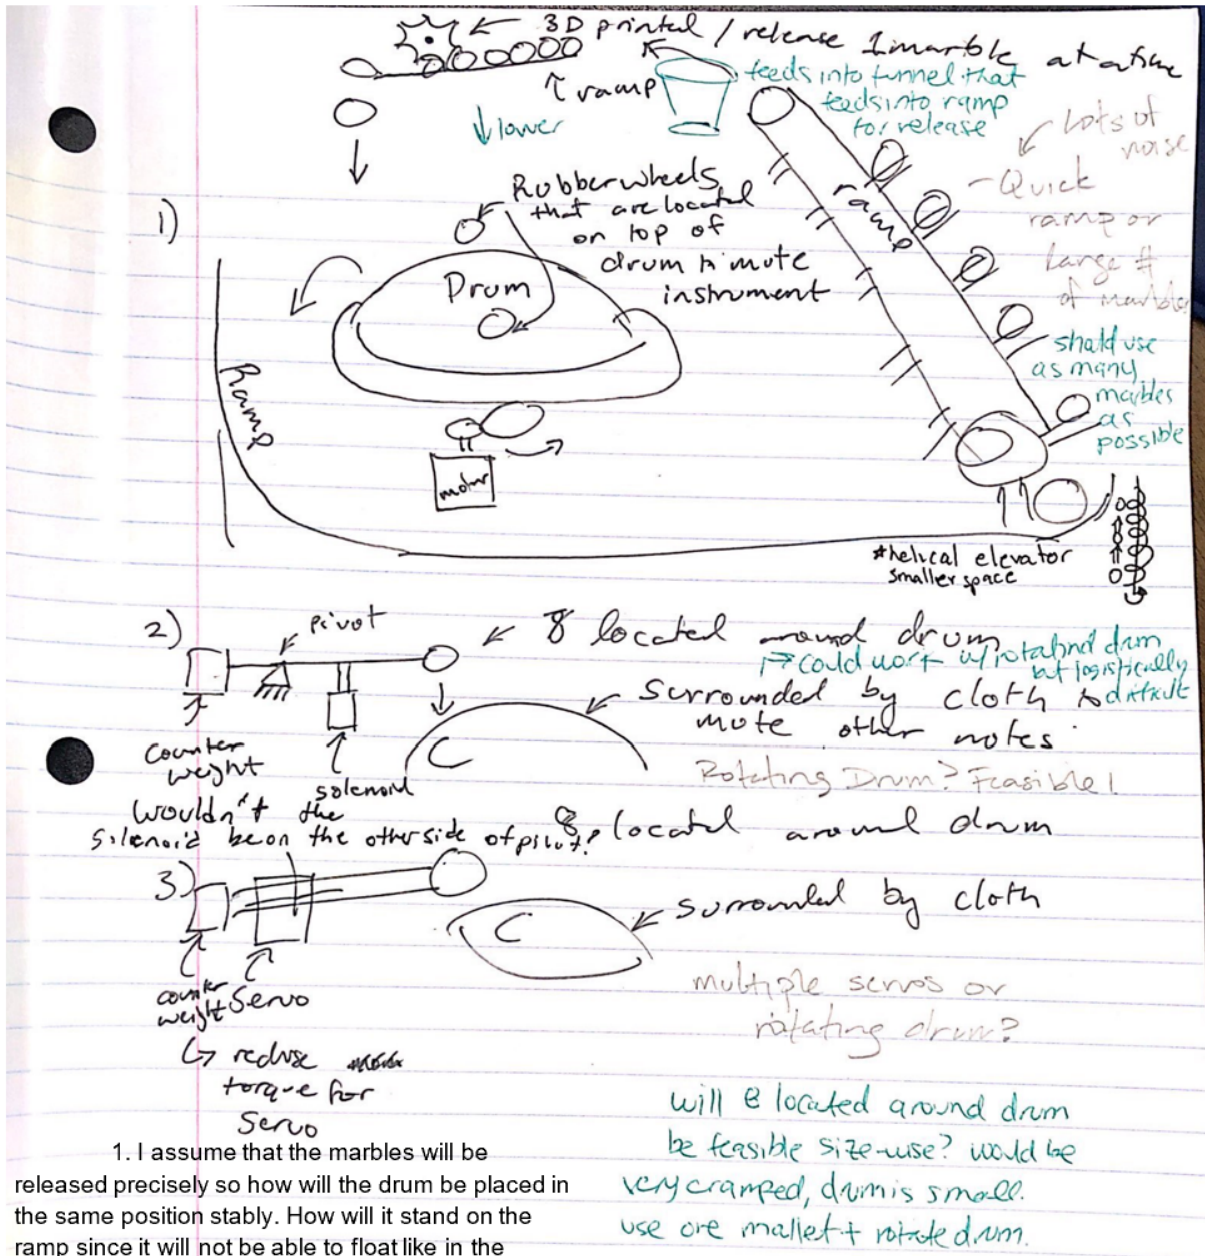 3D printed / release 1 marble at a time
↑ ramp
↓ lower
feeds into tunnel that
feeds into ramp
for release
Lots of
noise
- Quick
ramp or
large #
of marbles
1)
Rubber wheels
that are located
on top of
drum to mute
instrument
Drum
ramp
Ramp
motor
should use
as many
marbles
as
possible
*helical elevator
smaller space
2)
pivot
8 located around drum
→ could work w/ rotating drum
but logistically
difficult
surrounded by cloth to
mute other notes
C
counter
weight
solenoid
Rotating Drum? Feasible!
Wouldn't the
silenoid be on the other side of pivot?
8 located around drum
3)
surrounded by cloth
C
counter
weight
Servo
↳ reduse
torque for
Servo
multiple servos or
rotating drum?
will 8 located around drum
be feasible size-wise? would be
very cramped, drum is small.
use one mallet + rotate drum.
1. I assume that the marbles will be
released precisely so how will the drum be placed in
the same position stably. How will it stand on the
ramp since it will not be able to float like in the